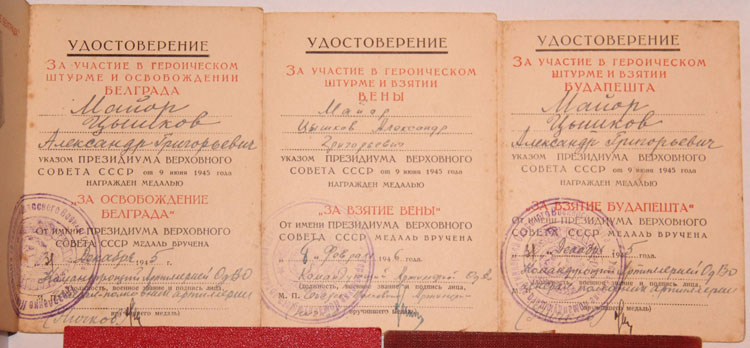 УДОСТОВЕРЕНИЕ
ЗА УЧАСТИЕ В ГЕРОИЧЕСКОМ
ШТУРМЕ И ОСВОБОЖДЕНИИ
БЕЛГРАДА
Майор
Цышков
Александр Григорьевич
УКАЗОМ ПРЕЗИДИУМА ВЕРХОВНОГО
СОВЕТА СССР ОТ 9 июня 1945 года
НАГРАЖДЕН МЕДАЛЬЮ
„ЗА ОСВОБОЖДЕНИЕ
БЕЛГРАДА"
ОТ ИМЕНИ ПРЕЗИДИУМА ВЕРХОВНОГО
СОВЕТА СССР МЕДАЛЬ ВРУЧЕНА
31 Декабрь 1945 г.
Командующий Артиллерией ОдВО
(должность, военное звание и подпись лица,
артиллерии
вручившего медаль)
УДОСТОВЕРЕНИЕ
ЗА УЧАСТИЕ В ГЕРОИЧЕСКОМ
ШТУРМЕ И ВЗЯТИИ
ВЕНЫ
Майор
Цышков Александр
Григорьевич
УКАЗОМ ПРЕЗИДИУМА ВЕРХОВНОГО
СОВЕТА СССР ОТ 9 июня 1945 года
НАГРАЖДЕН МЕДАЛЬЮ
„ЗА ВЗЯТИЕ ВЕНЫ"
ОТ ИМЕНИ ПРЕЗИДИУМА ВЕРХОВНОГО
СОВЕТА СССР МЕДАЛЬ ВРУЧЕНА
Февраля 1946 г.
Командующий Артиллерией
(должность, военное звание и подпись лица,
М. П.
вручившего медаль)
УДОСТОВЕРЕНИЕ
ЗА УЧАСТИЕ В ГЕРОИЧЕСКОМ
ШТУРМЕ И ВЗЯТИИ
БУДАПЕШТА
Майор
Цышков
Александр Григорьевич
УКАЗОМ ПРЕЗИДИУМА ВЕРХОВНОГО
СОВЕТА СССР ОТ 9 июня 1945 года
НАГРАЖДЕН МЕДАЛЬЮ
„ЗА ВЗЯТИЕ БУДАПЕШТА"
ОТ ИМЕНИ ПРЕЗИДИУМА ВЕРХОВНОГО
СОВЕТА СССР МЕДАЛЬ ВРУЧЕНА
31 Декабрь 1945 г.
Командующий Артиллерией ОдВО
(должность, военное звание и подпись лица,
артиллерии
вручившего медаль)